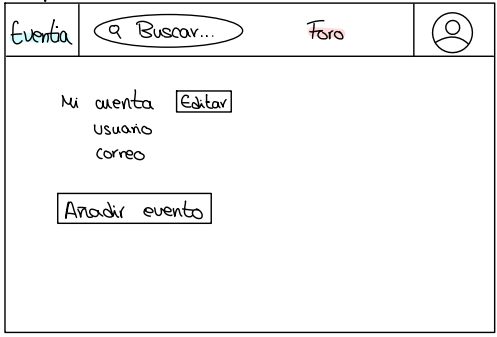 Eventia Buscar... Foro
Mi cuenta Editar
usuario
correo
Añadir evento